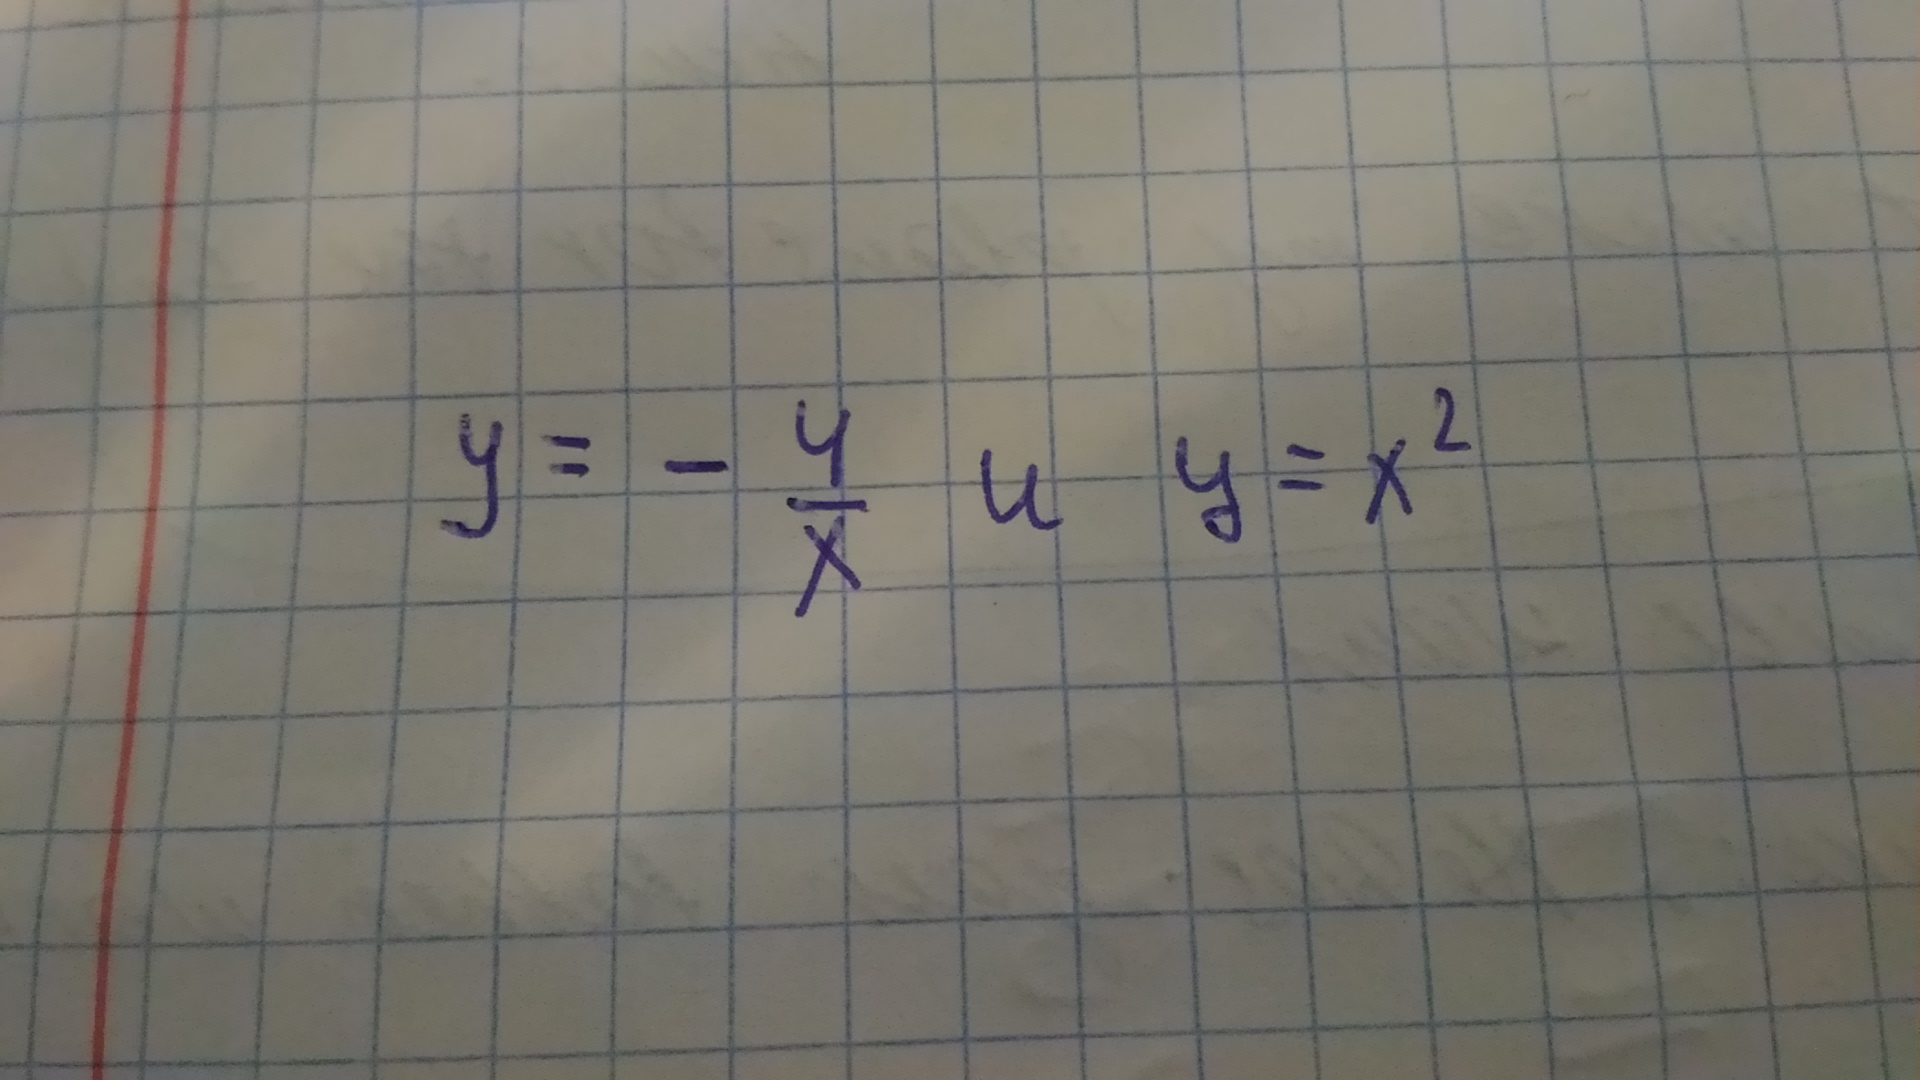 y = - 4/x и y = x²